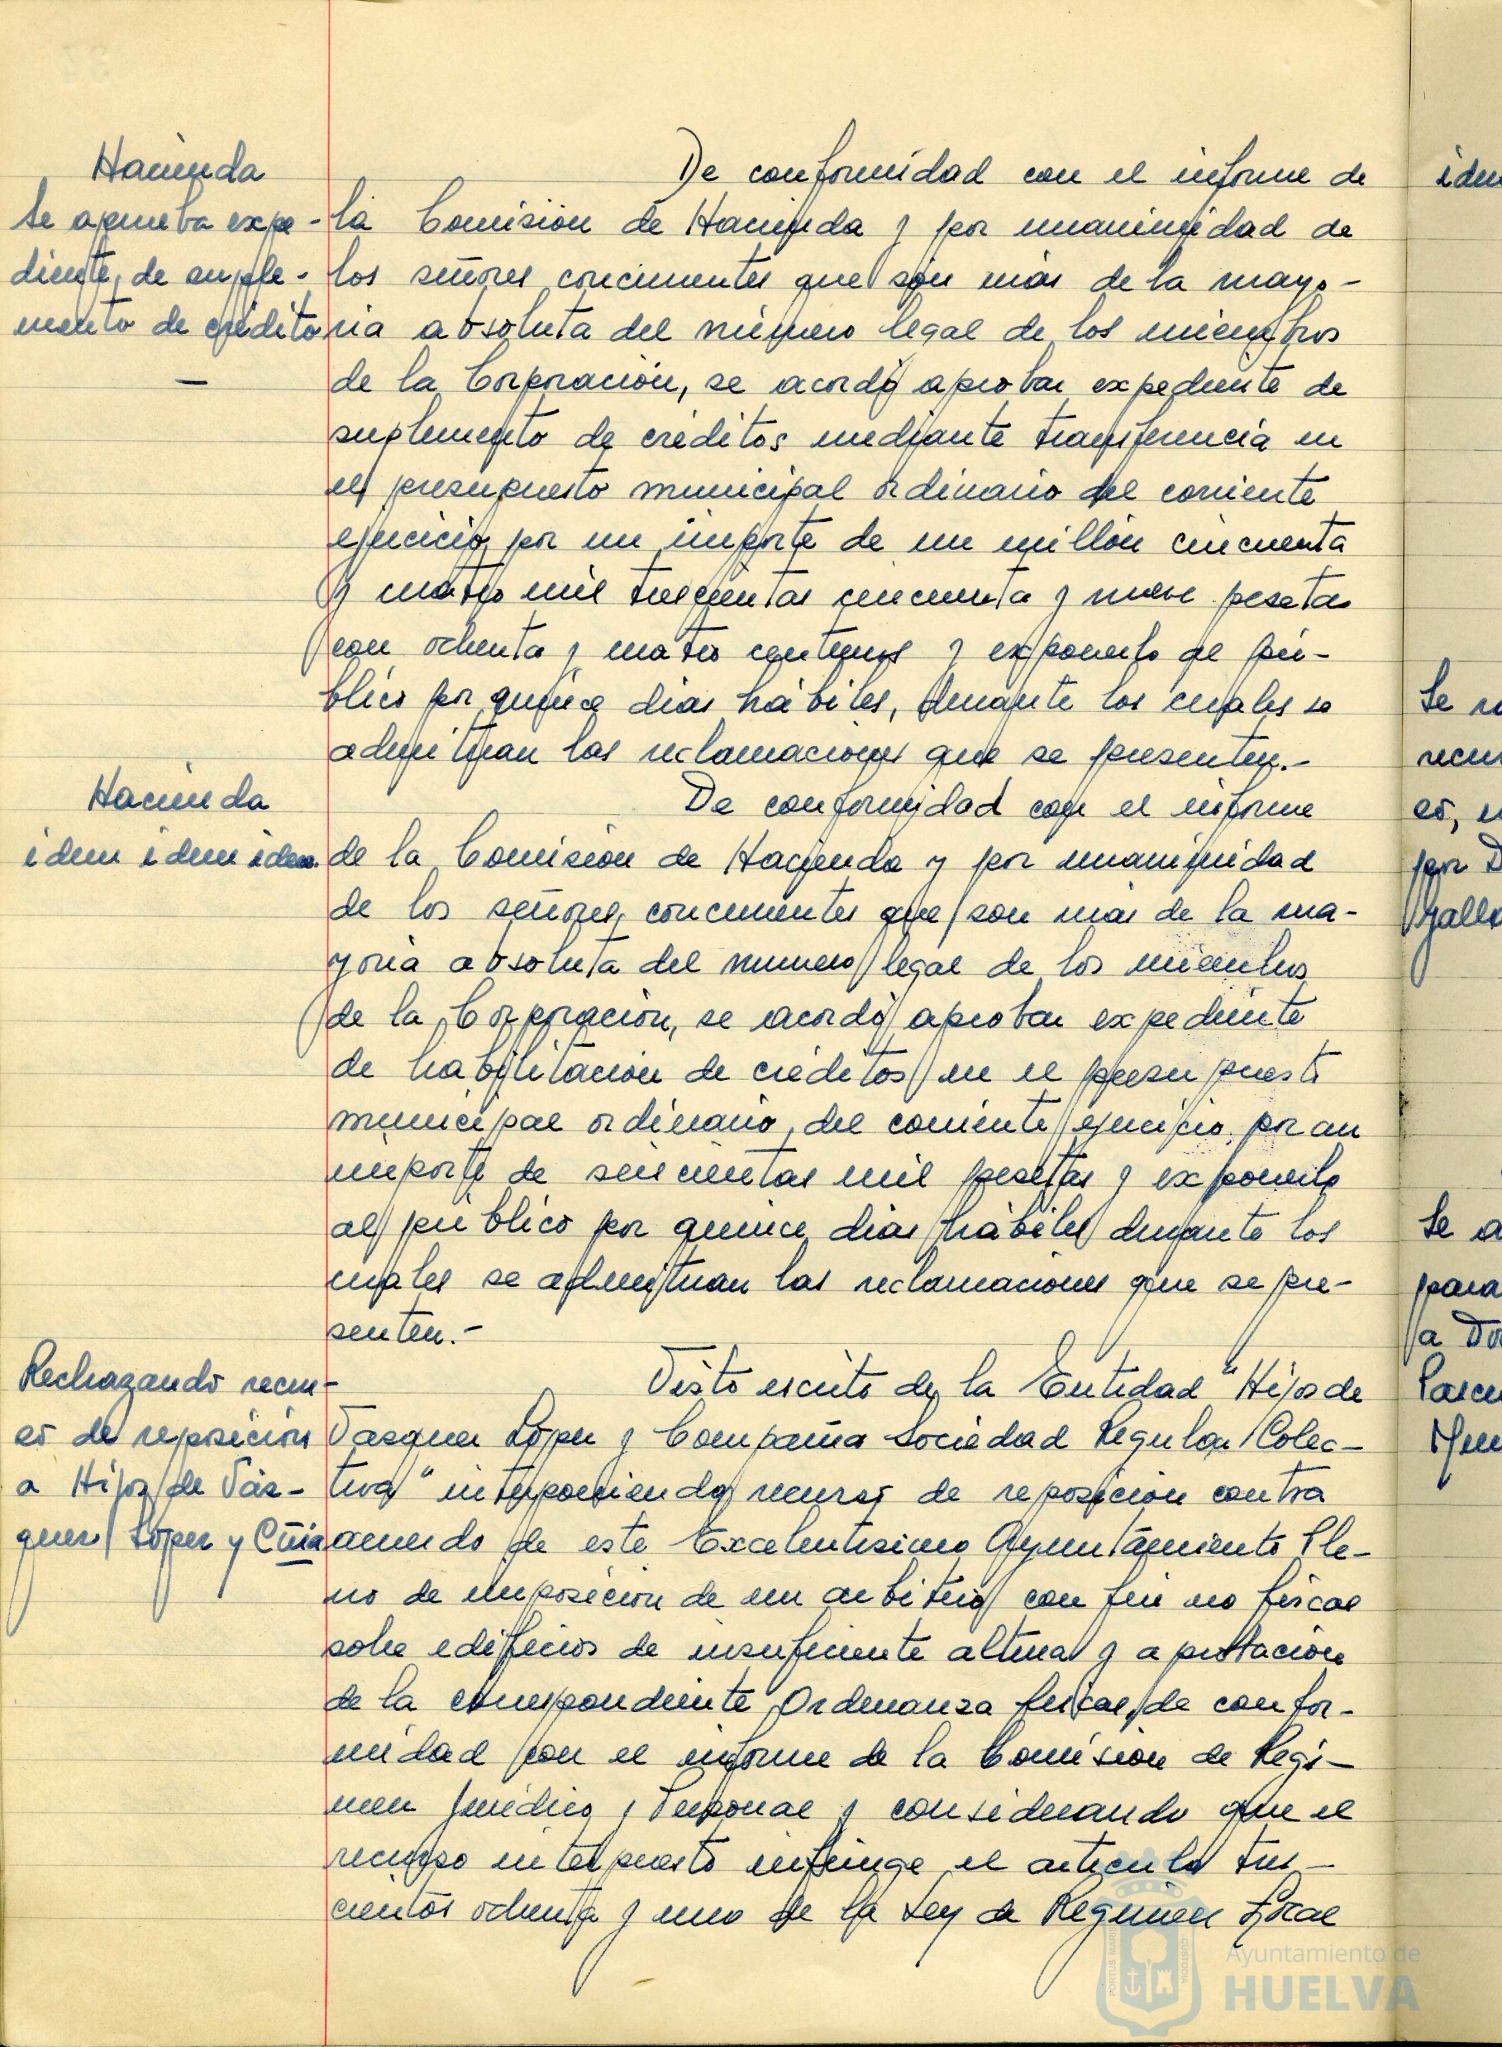 Hacienda
Se aprueba expe-
diente de suple-
mento de crédito
De conformidad con el informe de
la Comisión de Hacienda y por unanimidad de
los señores concurrentes que son más de la mayo-
ria absoluta del número legal de los miembros
de la Corporación, se acordó aprobar expediente de
suplemento de créditos mediante transferencia en
el presupuesto municipal ordinario del corriente
ejercicio por un importe de un millón cincuenta
y cuatro mil trescientas cincuenta y nueve pesetas
con ochenta y cuatro centimos y exponerlo al pú-
blico por quince dias hábiles, durante los cuales se
admitiran las reclamaciones que se presenten.-
Hacienda
idem idem idem
De conformidad con el informe
de la Comisión de Hacienda y por unanimidad
de los señores concurrentes que son más de la ma-
yoria absoluta del numero legal de los miembros
de la Corporación, se acordó aprobar expediente
de habilitación de créditos en el presupuesto
municipal ordinario del corriente ejercicio por un
importe de seiscientas mil pesetas y exponerlo
al público por quince dias hábiles durante los
cuales se admitiran las reclamaciones que se pre-
senten.-
Rechazando recur-
so de reposición
a Hijos de Váz-
quez López y Cñia
Visto escrito de la Entidad "Hijos de
Vazquez López y Compañia Sociedad Regular Colec-
tiva" interponiendo recurso de reposición contra
acuerdo de este Excelentisimo Ayuntamiento Ple-
no de imposición de un arbitrio con fin no fiscal
sobre edificios de insuficiente altura y aprobación
de la correspondiente Ordenanza fiscal, de confor-
midad con el informe de la Comisión de Regi-
men Juridico y Personal y considerando que el
recurso interpuesto infringe el articulo tres-
cientos ochenta y uno de la Ley de Regimen Local
idem
Se
por D
Se a
para
a Do
Ayuntamiento de
HUELVA